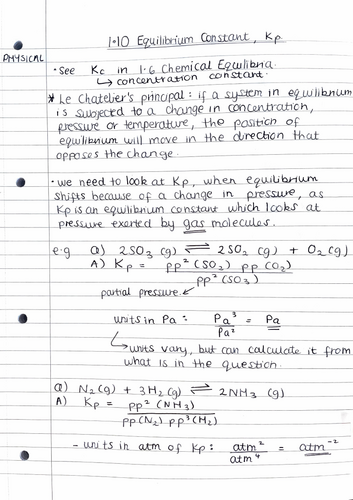 1.10 Equilibrium Constant, Kp
PHYSICAL
• See Kc in 1.6 Chemical Equilibria.
↳ concentration constant.
* Le Chatelier's principal: if a system in equilibrium
is subjected to a change in concentration,
pressure or temperature, the position of
equilibrium will move in the direction that
opposes the change.
• we need to look at Kp, when equilibrium
shifts because of a change in pressure, as
Kp is an equilibrium constant which looks at
pressure exerted by gas molecules.
e.g Q) 2SO₃ (g) ⇌ 2SO₂ (g) + O₂(g)
A) Kp = pp²(SO₂) pp(O₂)
pp²(SO₃)
partial pressure.
units in Pa: Pa³ = Pa
Pa²
↳ units vary, but can calculate it from
what is in the question.
Q) N₂(g) + 3H₂(g) ⇌ 2NH₃ (g)
A) Kp = pp²(NH₃)
pp(N₂) pp³(H₂)
- units in atm of Kp: atm² = atm⁻²
atm⁴